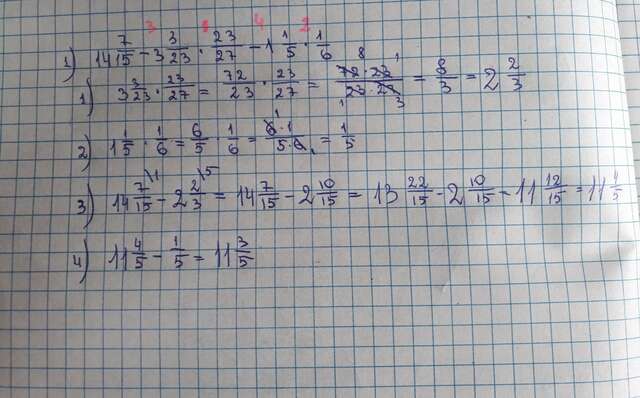 3 1 4 2
1) 14 7/15 - 3 3/23 · 23/27 - 1 1/5 · 1/6
1) 3 3/23 · 23/27 = 72/23 · 23/27 = 72·23/23·27 = 8/3 = 2 2/3
2) 1 1/5 · 1/6 = 6/5 · 1/6 = 6·1/5·6 = 1/5
3) 14 7/15 - 2 2/3 = 14 7/15 - 2 10/15 = 13 22/15 - 2 10/15 = 11 12/15 = 11 4/5
4) 11 4/5 - 1/5 = 11 3/5